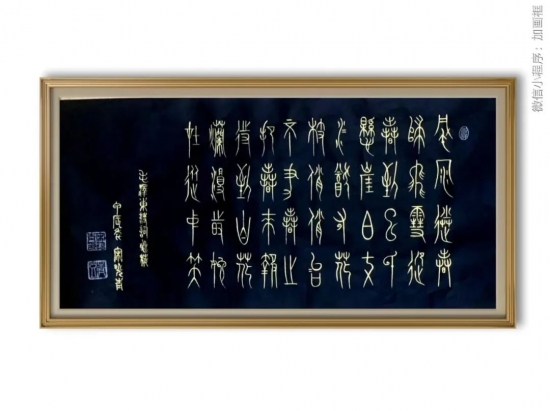 風雨送春
歸飛雪迎
春到已是
懸崖百丈
冰猶有花
枝俏俏也
不爭春只
把春來報
待到山花
爛漫時她
在叢中笑
毛澤東詩詞咏梅
甲辰
微信小程序：加画框